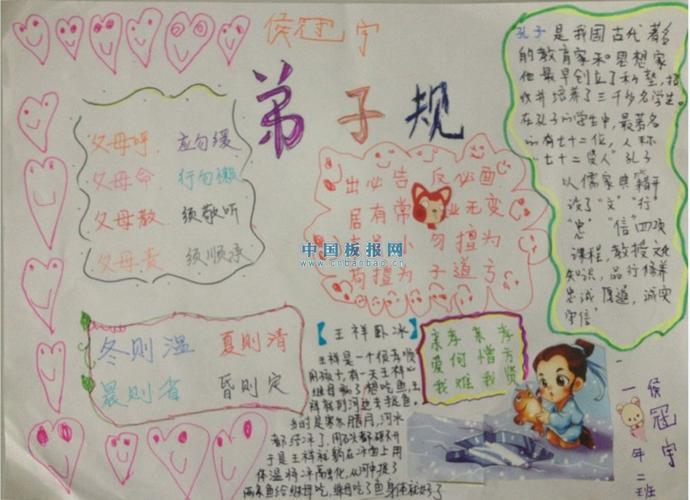 侯冠宇
弟子规
父母呼 应勿缓
父母命 行勿懒
父母教 须敬听
父母责 须顺承
出必告 反必面
居有常 业无变
勿擅为
苟擅为 子道亏
中国板报网
www.cnbanbao.cn
孔子是我国古代著名
的教育家和思想家
他最早创立了私塾,招
收并培养了三千多名学生。
在孔子的学生中,最著名
的有七十二位,人称
"七十二贤人"孔子
以儒家典籍开
设了"文""行"
"忠""信"四项
课程,教授文化
知识,品行修养
忠诚厚道,诚实
守信"
冬则温 夏则清
晨则省 昏则定
【王祥卧冰】
王祥是一个很孝顺
的孩子,有一天王祥的
继母病了想吃鱼,王
祥就到河边去捉鱼。
当时是寒冬腊月,河水
都结冰了,
于是王祥就躺在冰面上用
体温将冰融化,从河中捉了
两条鱼给继母吃,继母吃了鱼身体就好了
亲孝亲孝
爱何憎方
我难我贤
侯冠宇
一年二班